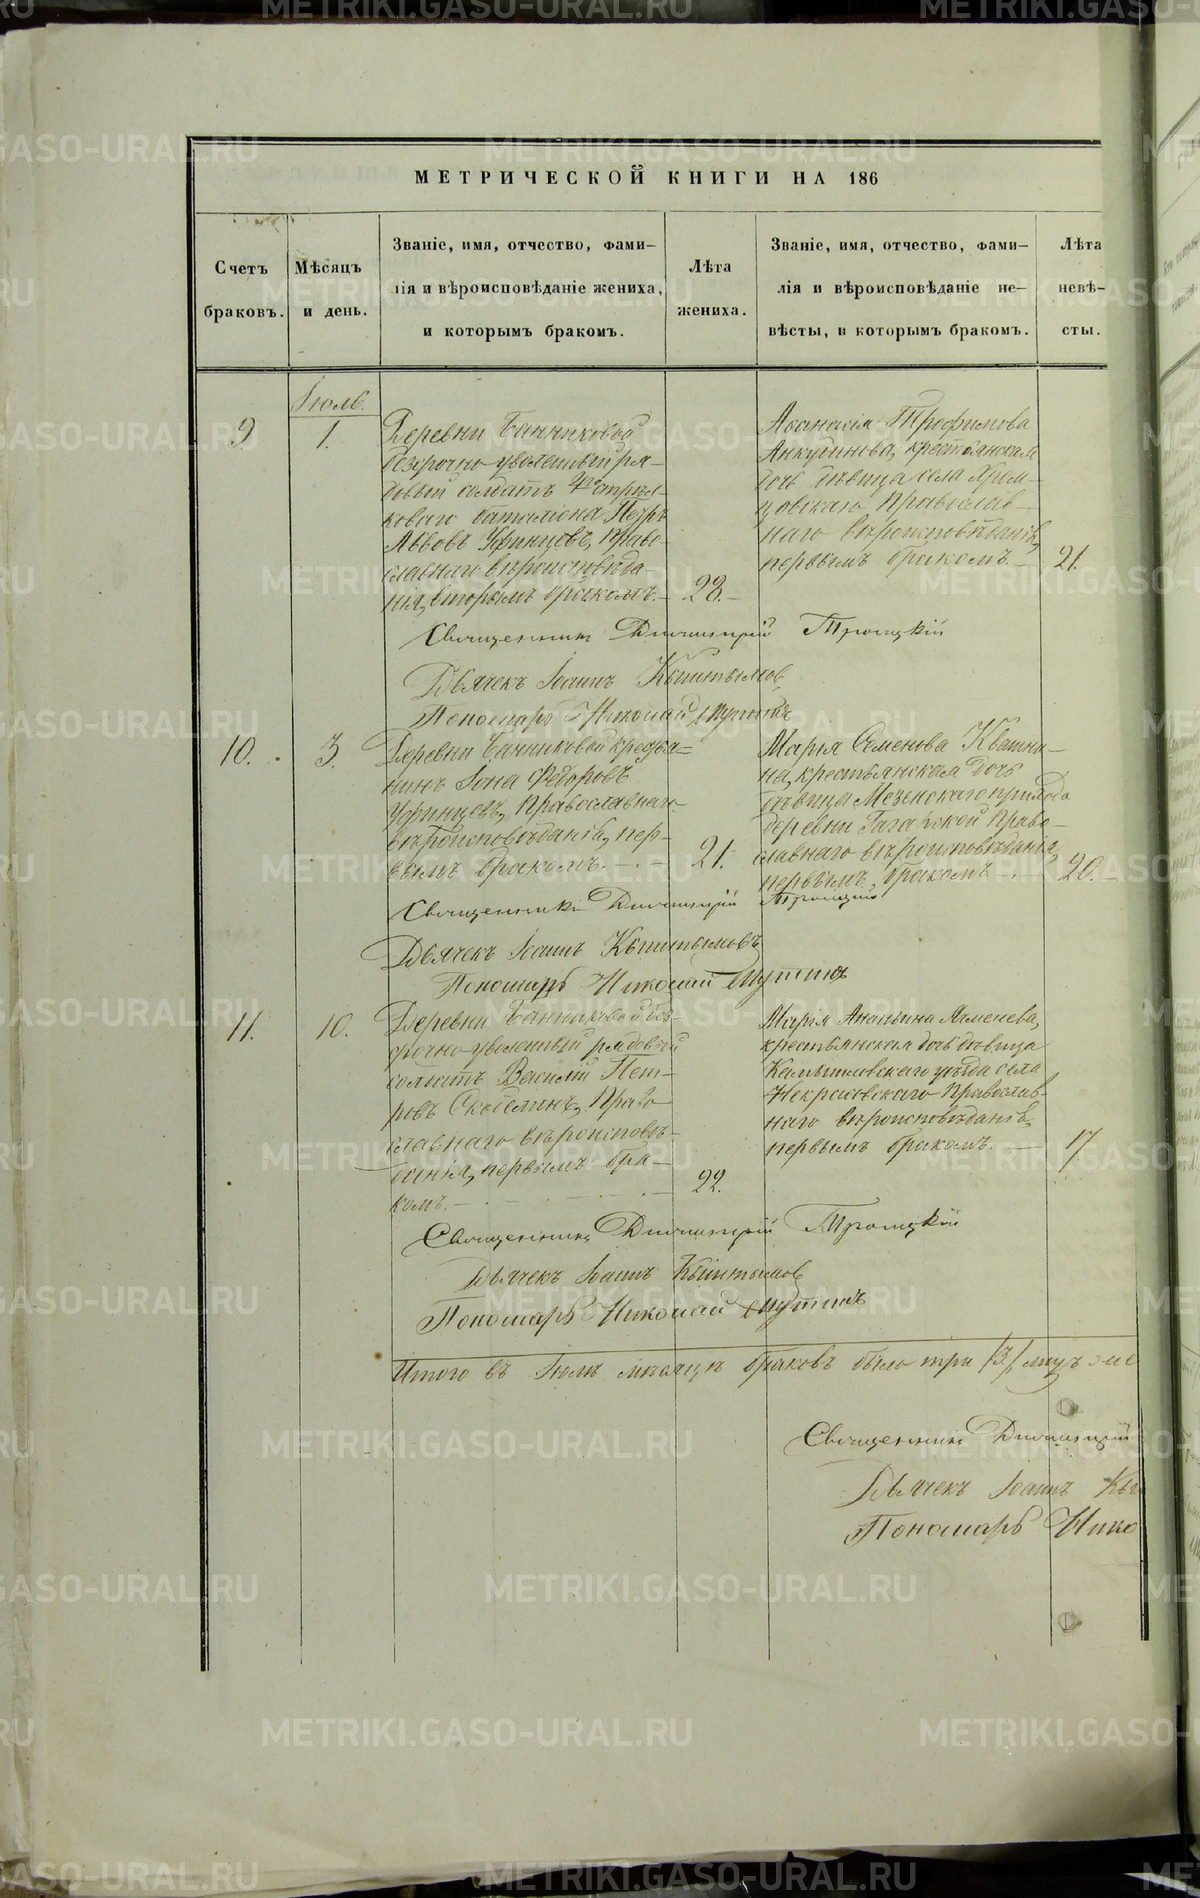 МЕТРИЧЕСКОЙ КНИГИ НА 186
Счетъ браковъ.
Мѣсяцъ и день.
Званіе, имя, отчество, фами-
лія и вѣроисповѣданіе жениха,
и которымъ бракомъ.
Лѣта
жениха.
Званіе, имя, отчество, фами-
лія и вѣроисповѣданіе не-
вѣсты, и которымъ бракомъ.
Лѣта
невѣ-
сты.
Іюль.
9
1.
Деревни Банниковой
безсрочно уволенный ря-
довый солдатъ 4го стрѣл-
коваго баталіона Петръ
Львовъ Уфинцевъ, право-
славнаго вѣроисповѣда-
нія, вторымъ бракомъ.
28.
Аѳанасія Трофимова
Анкудинова, крестьянская
дочь дѣвица села Хрем-
цовскаго, Православ-
наго вѣроисповѣданія,
первымъ бракомъ.
21.
Священникъ Димитрій Троицкій
Дьячекъ Іоаннъ Кыштымов
Пономарь Николай
10.
3.
Деревни Банниковой кресть-
нинъ Іона Ѳедоровъ
Уфинцевъ, Православнаго
вѣроисповѣданія, пер-
вымъ бракомъ.
21.
Марія Семенова Квашни-
на, крестьянская дочь
дѣвица Мезенскаго прихода
деревни Гагарской Право-
славнаго вѣроисповѣданія,
первымъ бракомъ
20.
Священникъ Димитрій Троицкій
Дьячекъ Іоаннъ Кыштымовъ
Пономарь Николай
11.
10.
Деревни Банниковой без-
срочно уволенный рядовой
солдатъ Василій Пет-
ровъ Скобелинъ, Право-
славнаго вѣроисповѣ-
данія, первымъ бра-
комъ.
22.
Марія Ананьина
крестьянская дочь дѣвица
Камышловскаго уѣзда села
Некрасовскаго Православ-
наго вѣроисповѣданія,
первымъ бракомъ.
17
Священникъ Димитрій Троицкій
Дьячекъ Іоаннъ Кыштымов
Пономарь Николай
Итого въ Іюлѣ мѣсяцѣ браковъ было три /3/
Священникъ Димитрій
Дьячекъ Іоаннъ Кы
Пономарь Нико
METRIKI.GASO-URAL.RU